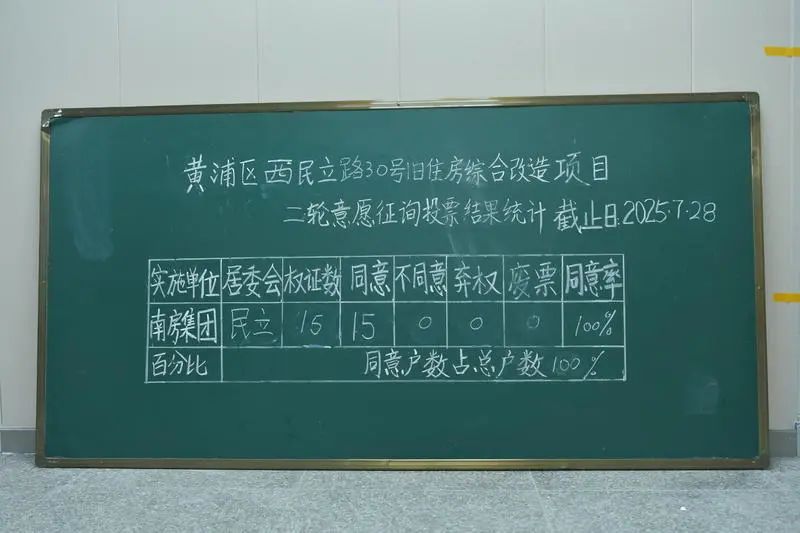 黄浦区西民立路30号旧住房综合改造项目
二轮意愿征询投票结果统计 截止日:2025.7.28
实施单位 居委会 权证数 同意 不同意 弃权 废票 同意率
南房集团 民立 15 15 0 0 0 100%
百分比 同意户数占总户数100%